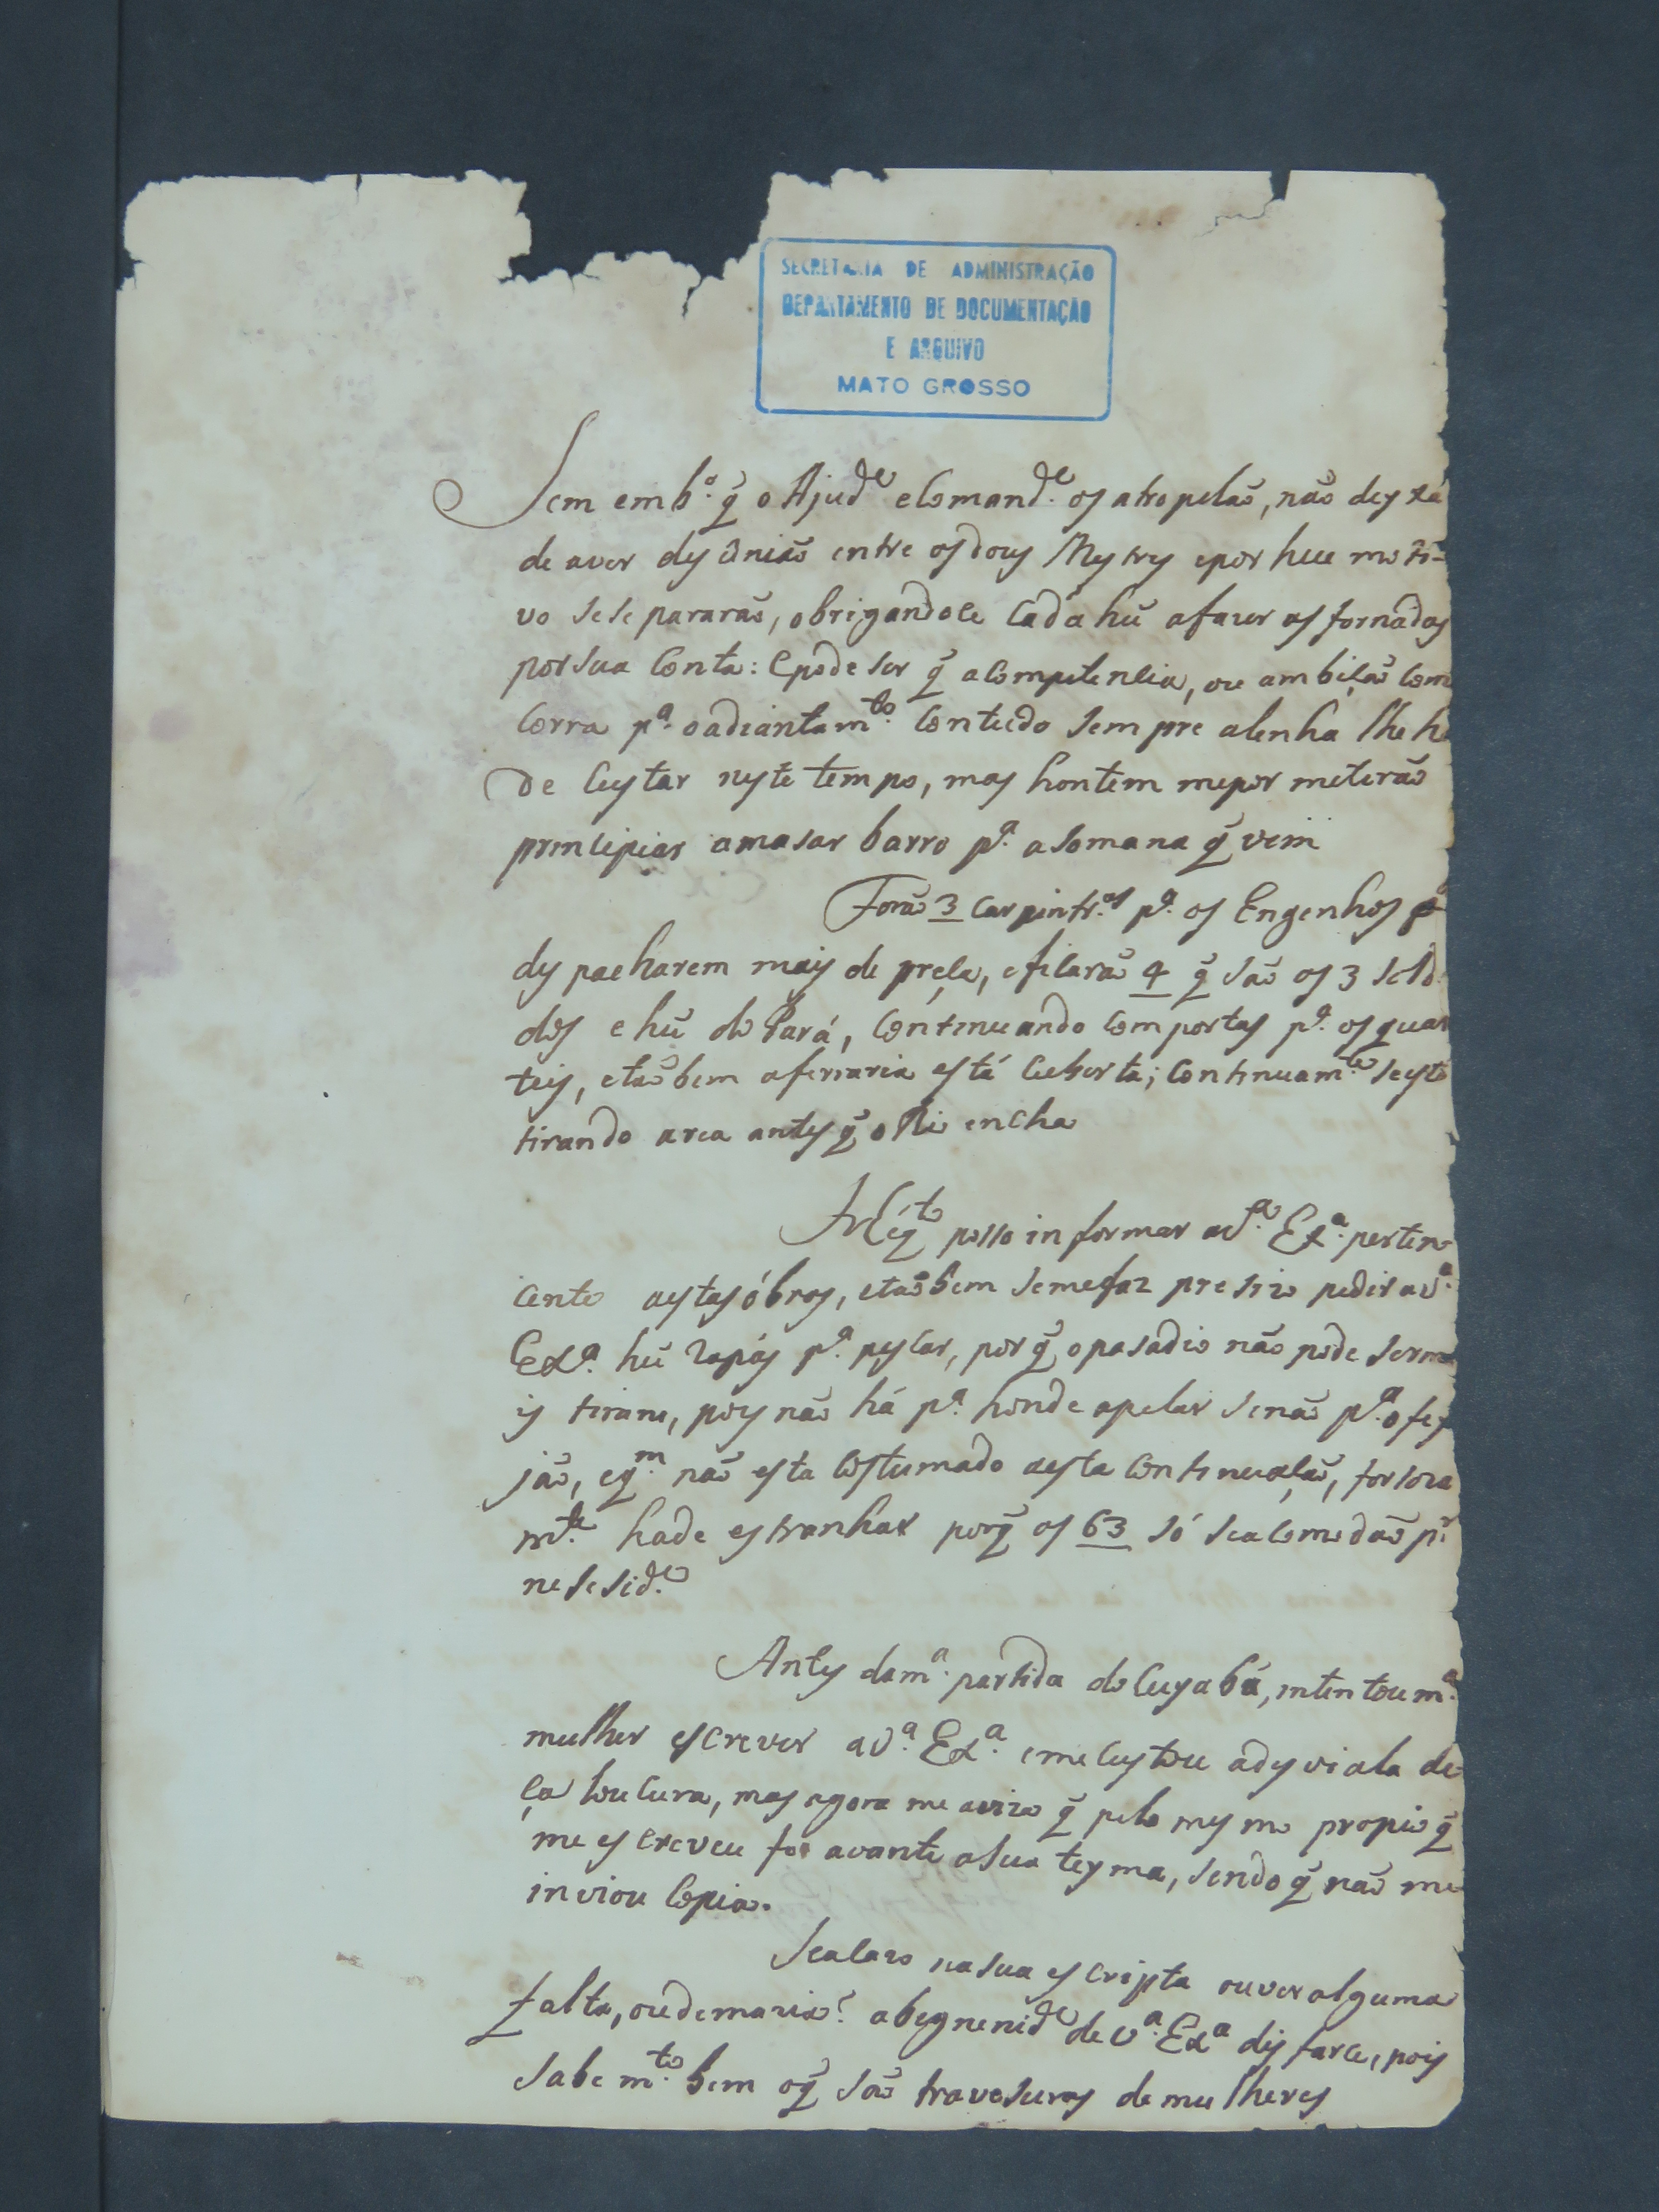 SECRETARIA DE ADMINISTRAÇÃO
DEPARTAMENTO DE DOCUMENTAÇÃO
E ARQUIVO
MATO GROSSO
Sem emb.º q̃ o Ajud.e e Comand.e os atropelaõ, naõ deyxa
de aver dys uniaõ entre os dous Mestres e por hu moti-
vo se separaraõ, obrigandoce cada hũ a fazer as jornadas
por sua Conta: e pode ser q̃ a Competencia, ou ambiçaõ Com
Corra p.ª o adiantam.to Contudo sempre a lenha lhe h
de Custar neste tempo, mas hontem me por meteraõ
principiar a masar barro p.ª a somana q̃ vem
Foraõ 3 Carpintr.os p.ª os Engenhos p.ª
des pacharem mais de preça, e ficaraõ 4 q̃ saõ os 3 solda
dos e hũ do Pará, Continuando Com portas p.ª os quar
teis, e taõbem a ferraria está Cuberta; Continuam.te se está
tirando area antes q̃ o Rio encha
He q.to posso in formar a V.ª Ex.ª perten
cente a estas óbras, e taõbem se me faz presizo pedir a V.ª
Ex.ª hũ Rapás p.ª pescar, por q̃ o pasadio não pode ser ma
is tirano, pois naõ há p.ª honde apelar senaõ p.ª o fey
jaõ, e q.m naõ esta Costumado a esta Continuaçaõ, forsoza
m.te hade estranhar porq̃ os 63 só se acomodaõ p.r
nesesid.e
Antes da m.ª partida do Cuyabá, intentou m.ª
mulher escrever a V.ª Ex.ª e me Custou a dysviala de
ça loucura, mas agora me aviza q̃ pelo mesmo propio q̃
me escreveu foi avante a sua teyma, sendo q̃ naõ me
inviou Copia.
Se a Cazo na sua escripta ouver alguma
falta, ou demazia? a begnenid.e de V.ª Ex.ª disfarce, pois
sabe m.to bem o q̃ saõ travesuras de mulheres